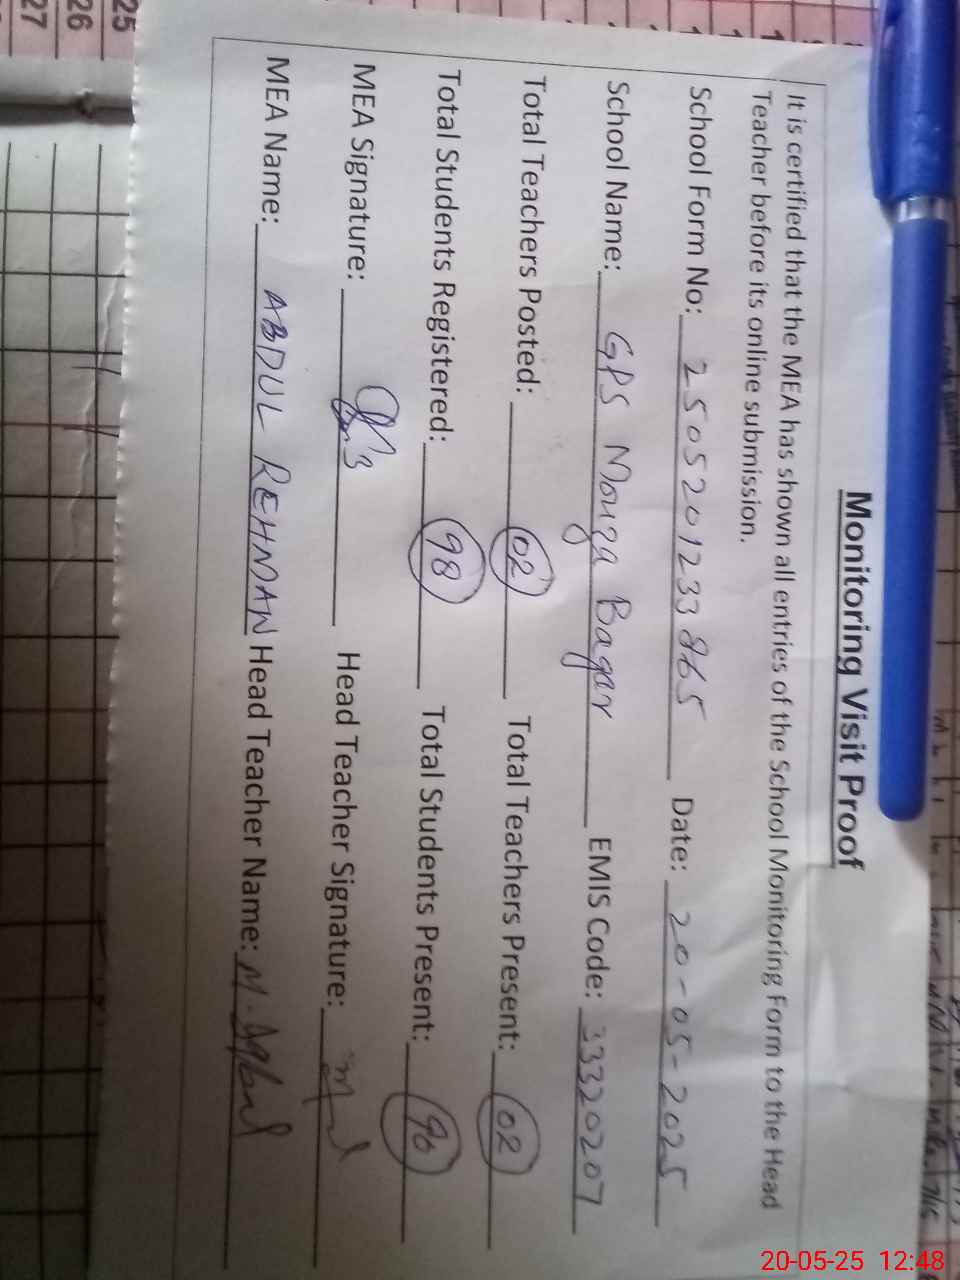 Monitoring Visit Proof
It is certified that the MEA has shown all entries of the School Monitoring Form to the Head
Teacher before its online submission.
School Form No: 2505201233865 Date: 20-05-2025
School Name: GPS Mouza Bagar EMIS Code: 33320207
Total Teachers Posted: 02 Total Teachers Present: 02
Total Students Registered: 98 Total Students Present: 90
MEA Signature: Head Teacher Signature:
MEA Name: ABDUL REHMAN Head Teacher Name: M. Iqbal
25
26
27
20-05-25 12:48